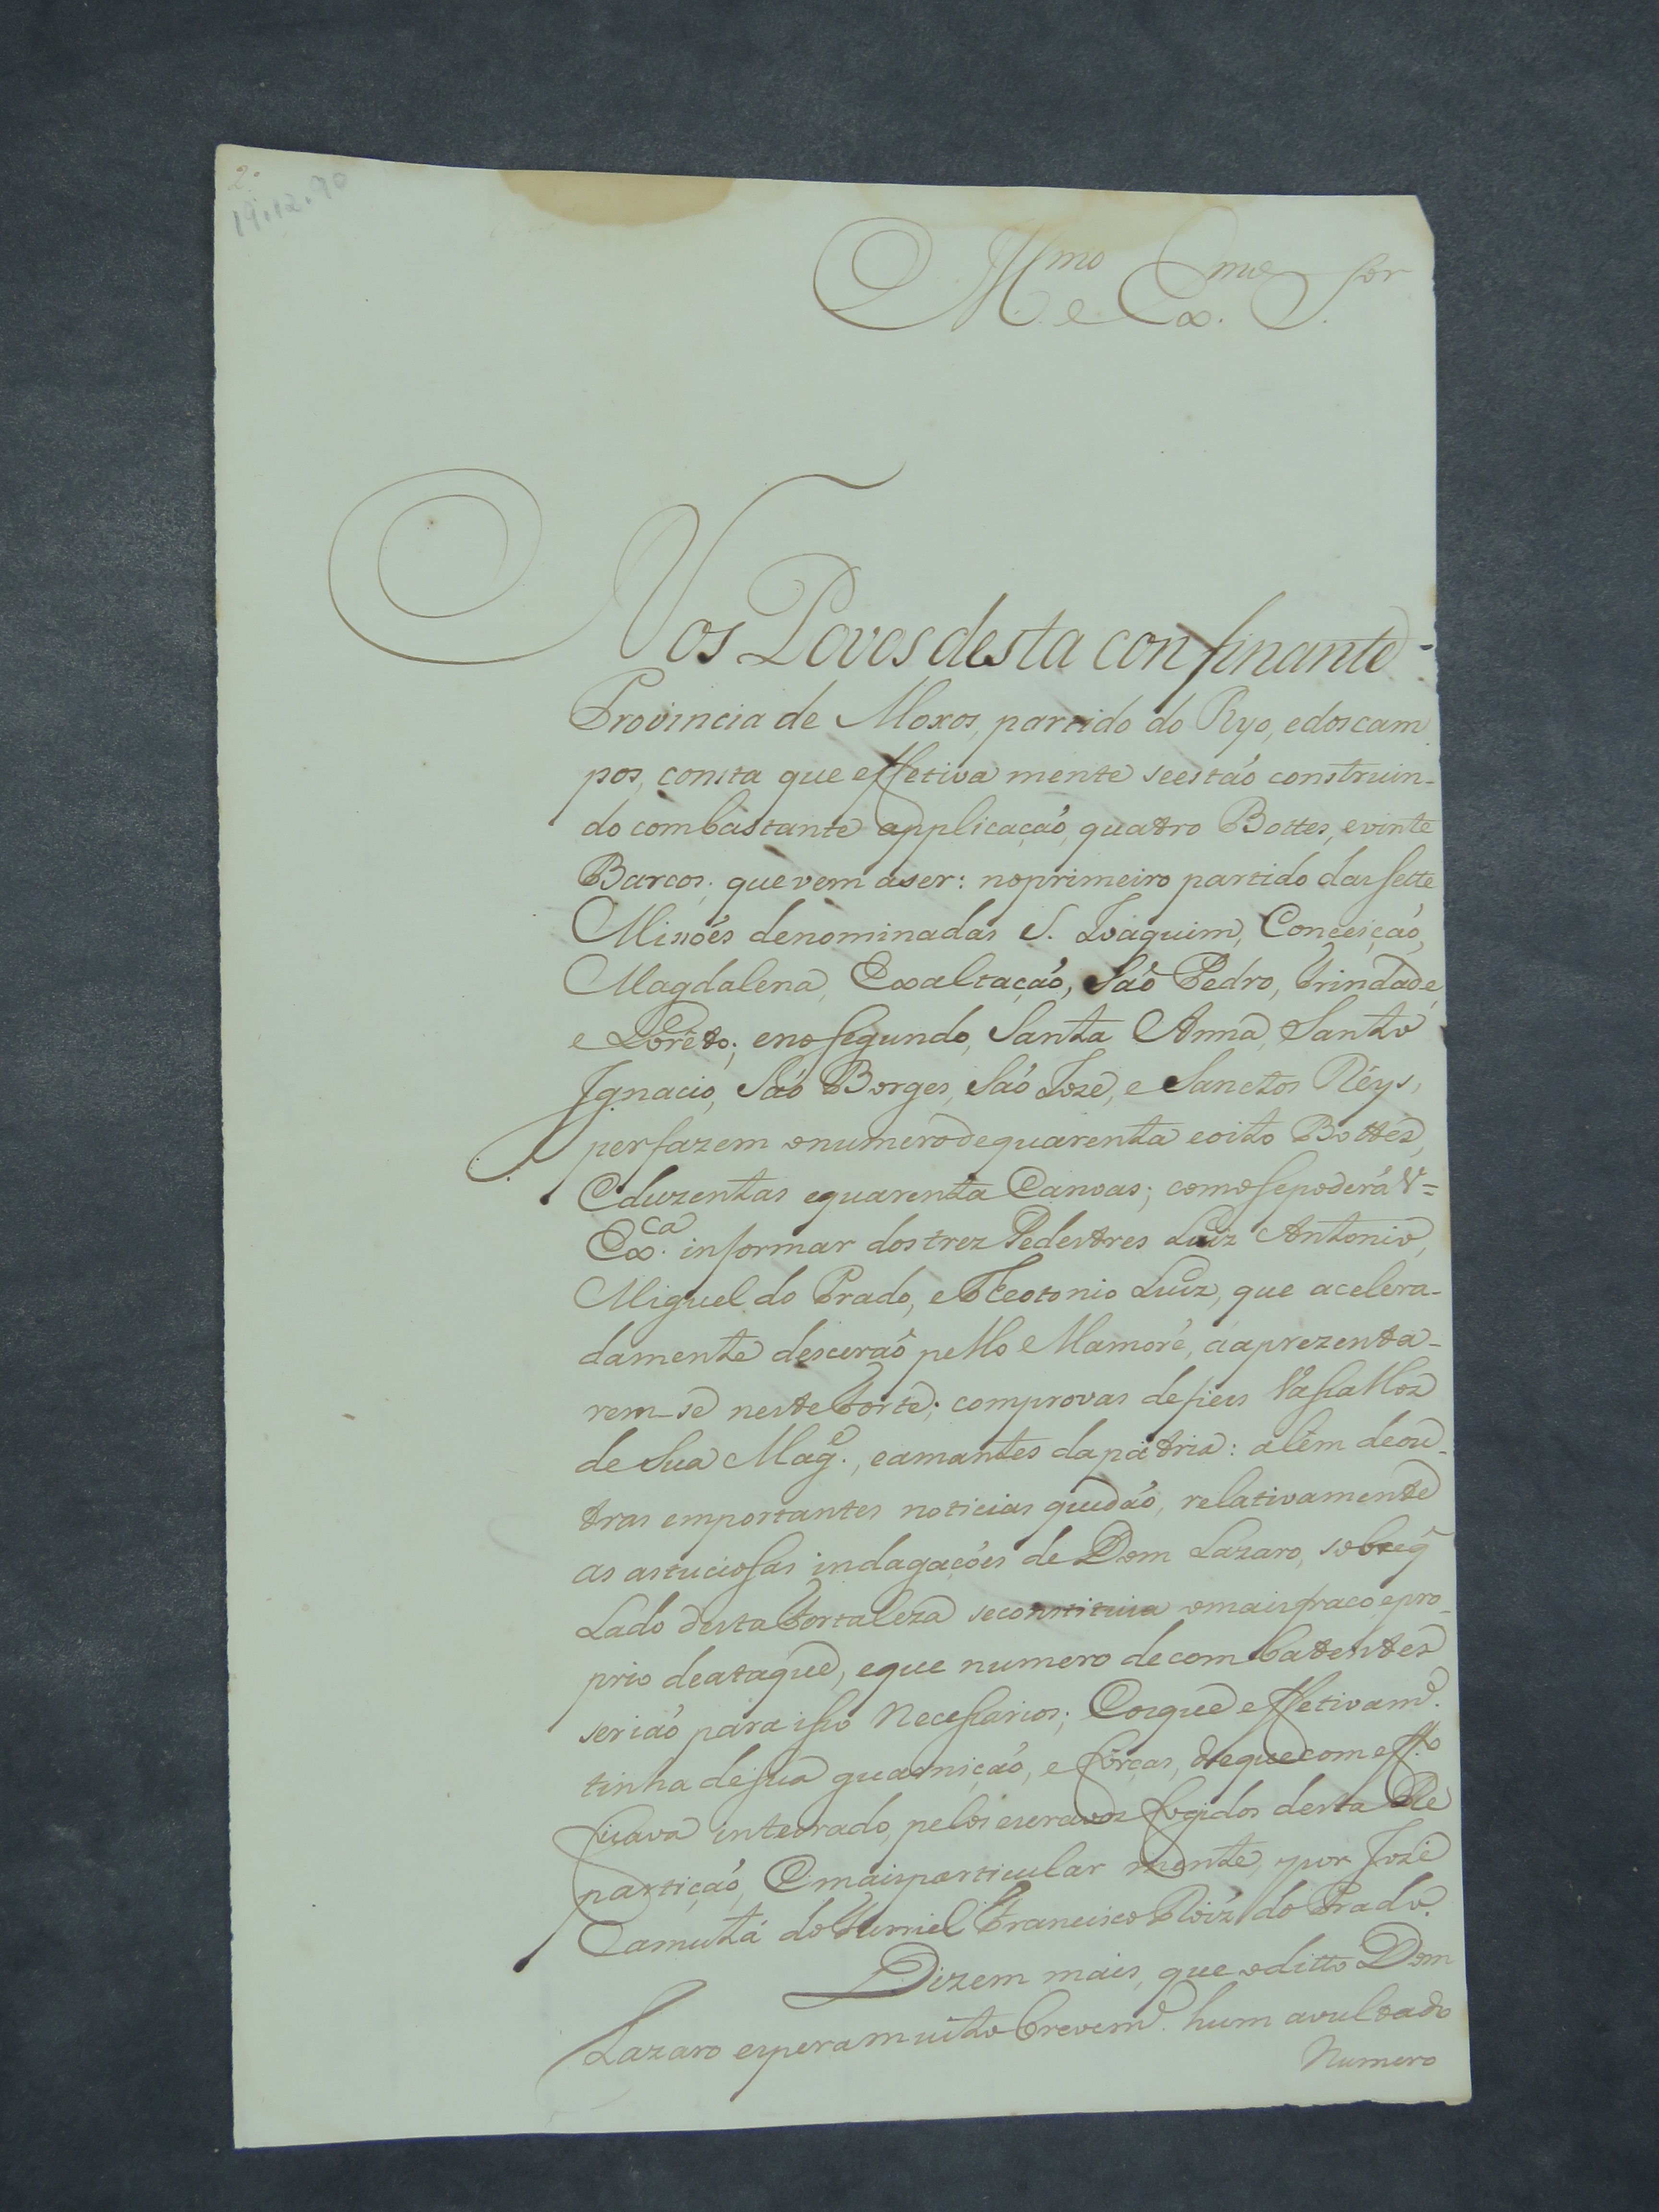 2.
19.12.90
Ill.mo e Ex.mo S.or
Nos Povos desta confinante
Provincia de Moxos, partido do Ryo, edoscam
pos, consta que effetiva mente seestaó construin-
do combastante applicaçaó, quatro Bottes, evinte
Barcos; quevem aser: noprimeiro partido das sette
Missoés denominadas S. Joaquim, Conceiçaó,
Magdalena, Exaltaçaó, Saó Pedro, Trindade,
e Loréto; eno segundo, Santa Anna, Santo
Ignacio, Saó Borges, Saó José, e Sanctos Réys,
perfazem onumerodequarenta eoito Bottes,
Eduzentas equarenta Canoas; comosepoderá V=
Ex.ca informar dostrez Pedestres Luiz Antonio,
Miguel do Prado, eTheotonio Luiz, que acelera-
damente desceraó pello Mamoré, aaprezenta-
rem-se nesteForte; comprovas defieis Vassallos
de Sua Mag.e, eamantes dapátria: além deou-
tras emportantes noticias quedaó, relativamente
as astuciosas indagaçoés de Dom Lazaro, sobreq̃
Lado destaFortaleza seconstituia omaisfraco, epro-
prio deataque, eque numero decombatentes
seriaó para isso Necessarios; Eoque effetivam.e
tinha desua guarniçaó, e forças, dequecom eff.o
ficava inteirado, pelos escravos fogidos desta Re
partiçaó, Emaisparticular mente, por José
Camutá doFurriel Francisco Roiz do Prado.
Dizem mais, que oditto Dom
Lazaro esperamuitobrevem.e hum avultado
Numero